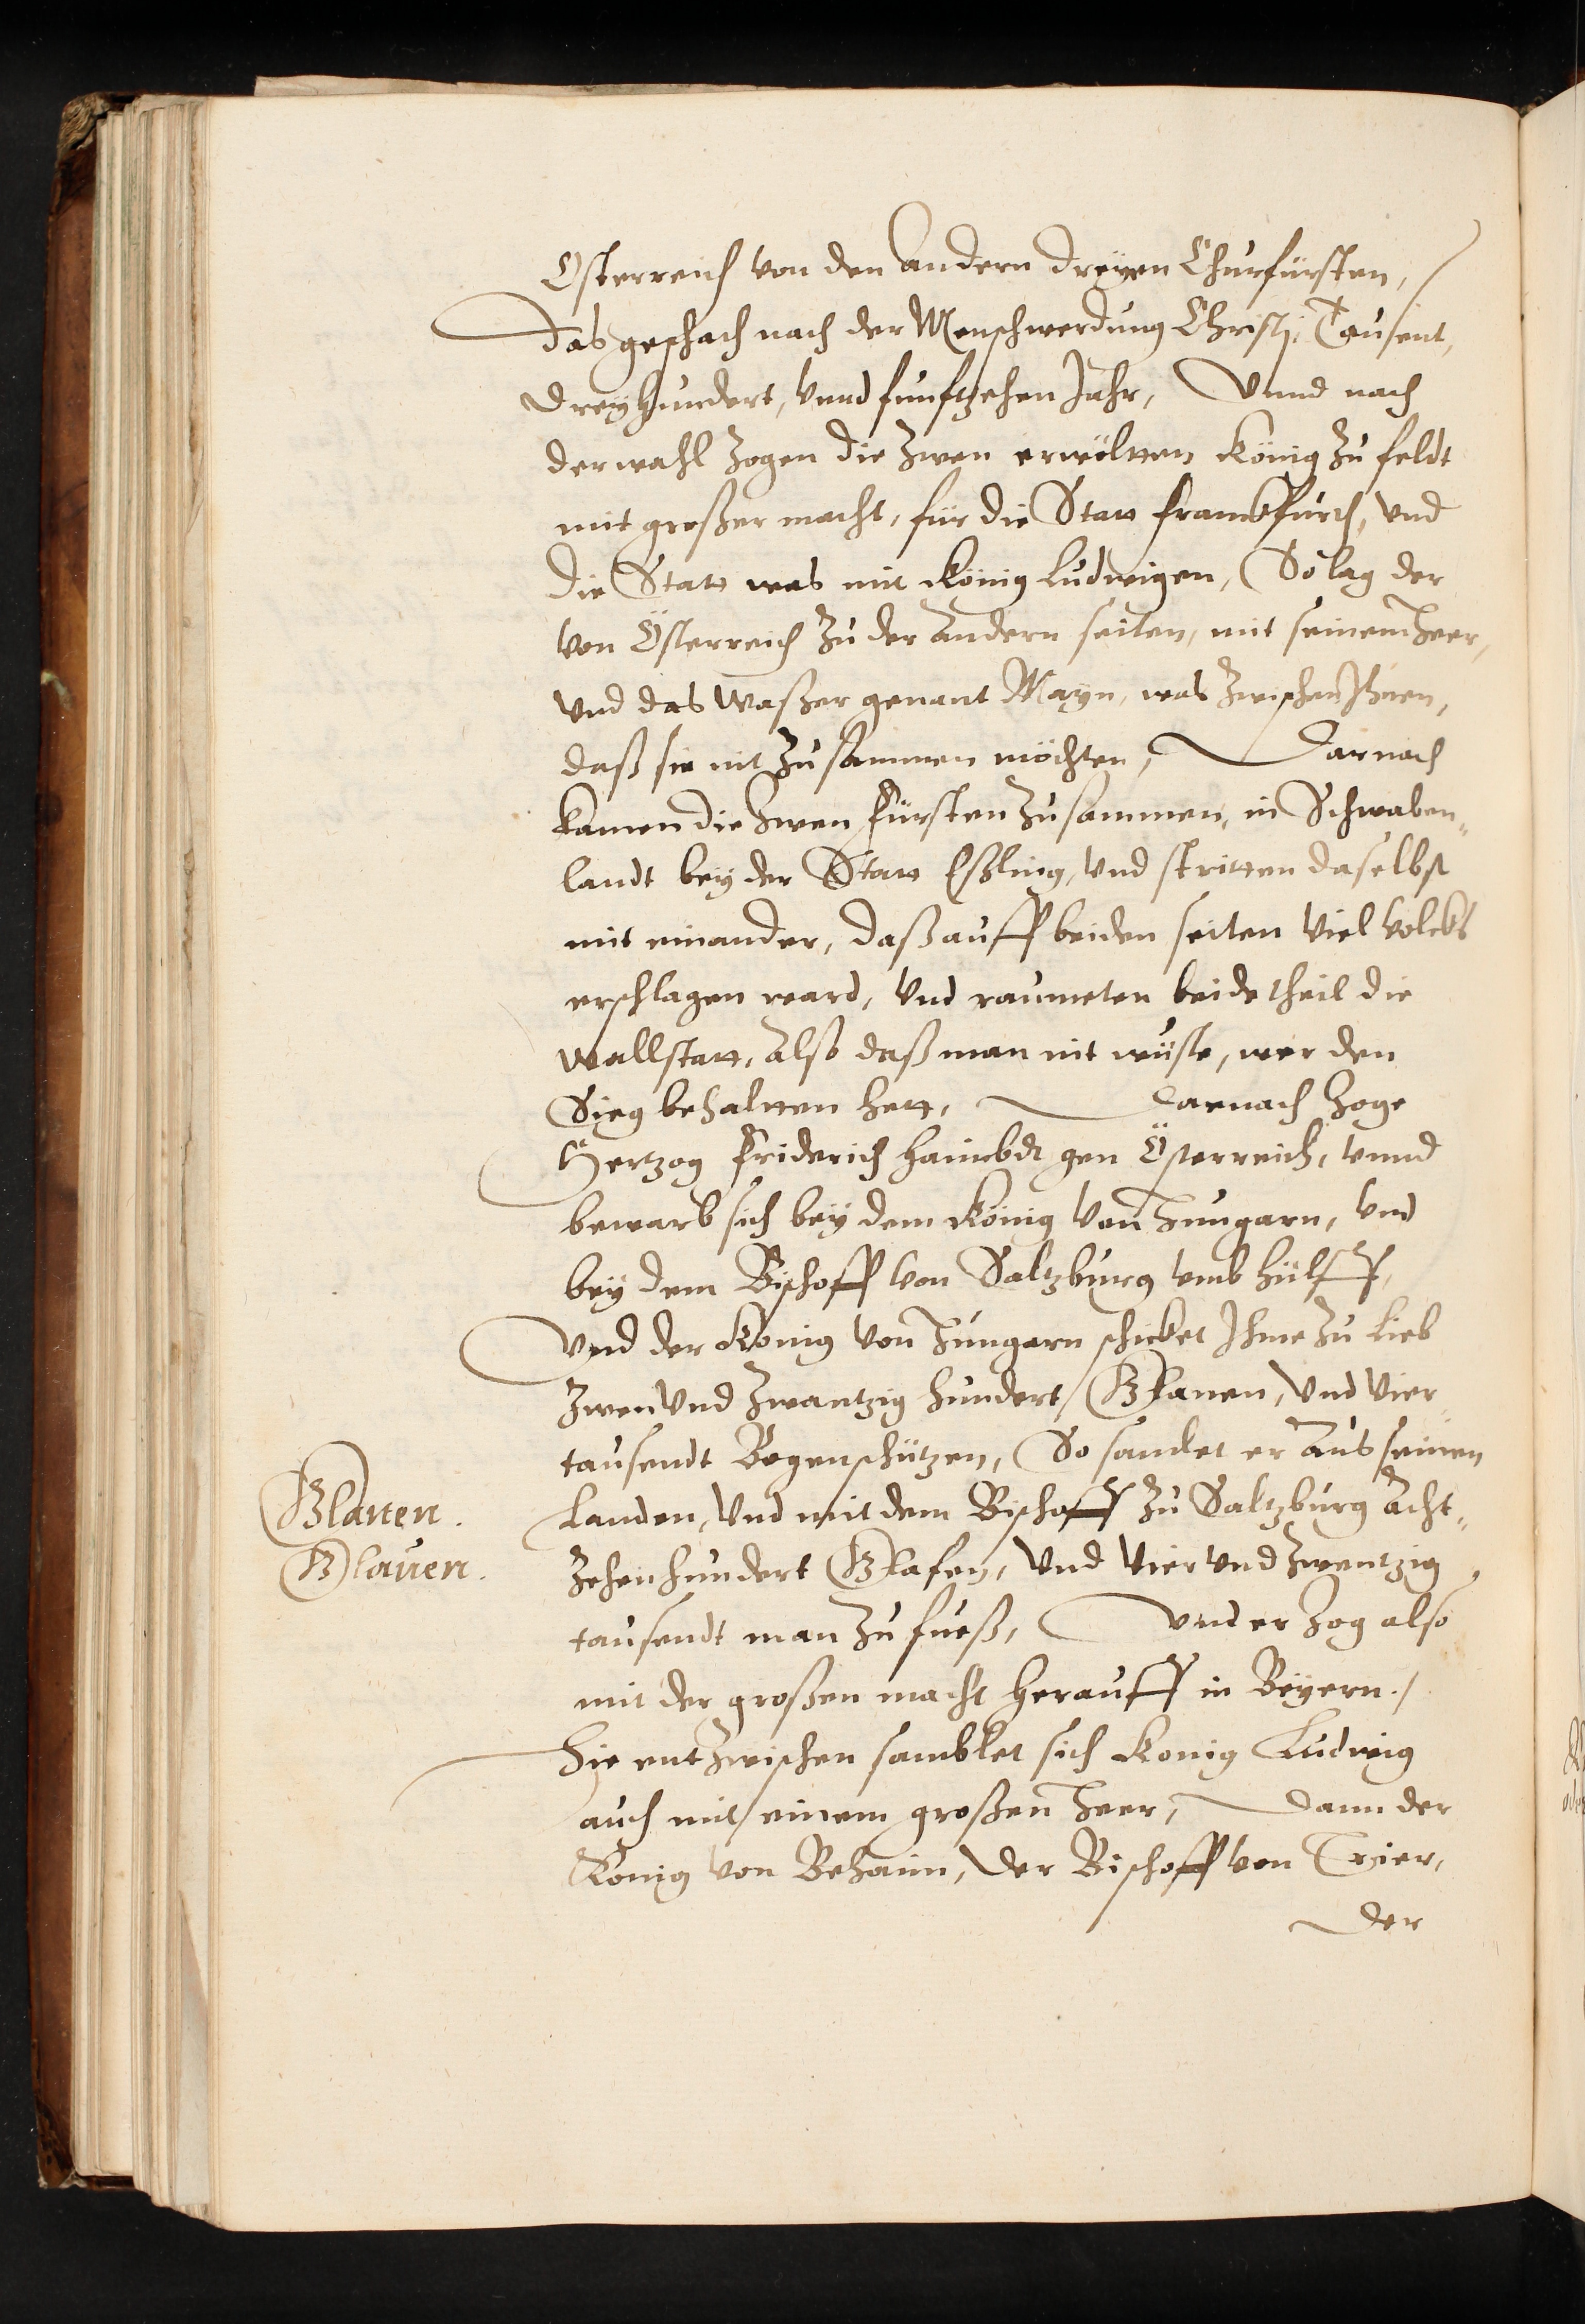 Osterreich von den andern dreyen Churfürsten,
Das geschach nach der Menschwerdung Christi, Tausent,
Dreyhundert, vnnd funftzehen Jahr, Vnnd nach
der wahl zogen die zwen erwöltten König zu feldt
mit großer macht, für die Statt franckfurth, vnd
die Statt was mit König Ludwigen, So lag der
von Österreich zu der andern seiten, mit seinem heer,
vnd das Waßer genant Mayn, was zwischen Ihnen,
daß sie nit zusammen möchten, Darnach
kamen die zwen fürsten zusammen, in Schwaben„
landt bey der Statt Eßling, vnd stritten daselbst
mit einander, daß auff beiden seiten viel volcks
erschlagen ward, vnd raumeten beide theil die
wallstatt, also daß man nit wuste, wer den
Sieg behaltten hett, Darnach zoge
Hertzog friderich haimbdt gen Österreich, vnnd
bewarb sich bey dem König von hungarn, vnd
bey dem Bischoff von Saltzburg vmb hülff,
Vnd der König von hungarn schicket Ihme zu lieb
zwen vnd zwantzig hundert Glanen, vnd vier
tausendt Bogenschützen, So samlet er aus seinen
Landen, vnd mit dem Bischoff zu Saltzburg acht„
zehenhundert Glafen, vnd vier vnd zwentzig
tausendt man zu fueß, vnd er zog also
mit der großen macht herauff in Beyern./
Hie entzwischen samblet sich König Ludwig
auch mit einem großen heer, Dann der
König von Behaim, der Bischoff von Trier,
Der
Glanen.
Glauen.